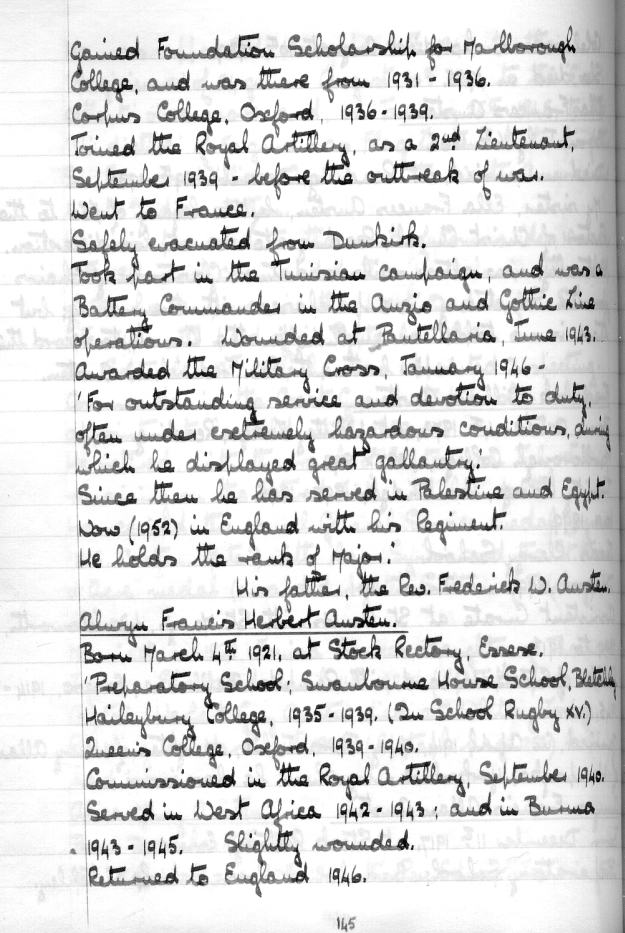 Gained Foundation Scholarship for Marlborough
College, and was there from 1931 - 1936.
Corpus College, Oxford, 1936-1939.
Joined the Royal Artillery, as a 2nd Lieutenant,
September 1939 - before the outbreak of war.
Went to France.
Safely evacuated from Dunkirk.
Took part in the Tunisian campaign, and was a
Battery Commander in the Anzio and Gothic Line
operations. Wounded at Pantellaria, June 1943.
Awarded the Military Cross, January 1946 -
'For outstanding service and devotion to duty,
often under extremely hazardous conditions, during
which he displayed great gallantry.'
Since then he has served in Palestine and Egypt.
Now (1952) in England with his Regiment.
He holds the rank of Major.'
His father, the Rev. Frederick W. Austen.
Alwyn Francis Herbert Austen.
Born March 4th 1921, at Stock Rectory, Essex.
'Preparatory School; Swanbourne House School, Bletchley
Haileybury College, 1935-1939. (In School Rugby XV.)
Queen's College, Oxford, 1939-1940.
Commissioned in the Royal Artillery, September 1940.
Served in West Africa 1942-1943; and in Burma
1943-1945. Slightly wounded.
Returned to England 1946.
145